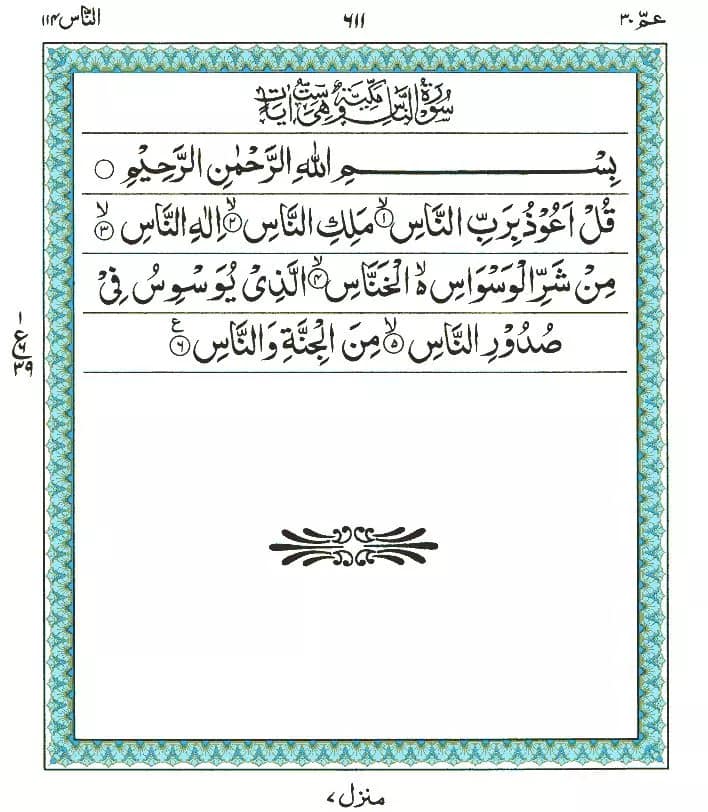 عمّ ٣٠ ٦١١ النّاس ١١٤
سُوْرَةُ النَّاسِ مَكِّيَّةٌ وَّهِىَ سِتُّ اٰيَاتٍ
بِسْمِ اللهِ الرَّحْمٰنِ الرَّحِيْمِ ○
قُلْ اَعُوْذُ بِرَبِّ النَّاسِ ۙ﴿١﴾ مَلِكِ النَّاسِ ۙ﴿٢﴾ اِلٰهِ النَّاسِ ۙ﴿٣﴾
مِنْ شَرِّ الْوَسْوَاسِ ەۙ الْخَنَّاسِ ۙ﴿٤﴾ الَّذِىْ يُوَسْوِسُ فِىْ
صُدُوْرِ النَّاسِ ۙ﴿٥﴾ مِنَ الْجِنَّةِ وَالنَّاسِ ﴿٦﴾ ع
١
ع
٦
٣٩
منزل ٧